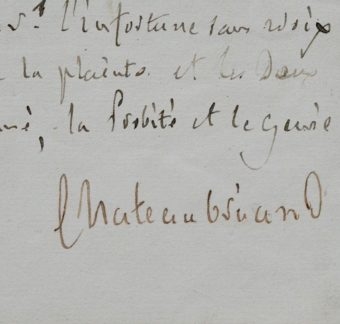 l'infortune sans
la plainte et les Deux
la Probité et le genie
Chateaubriand